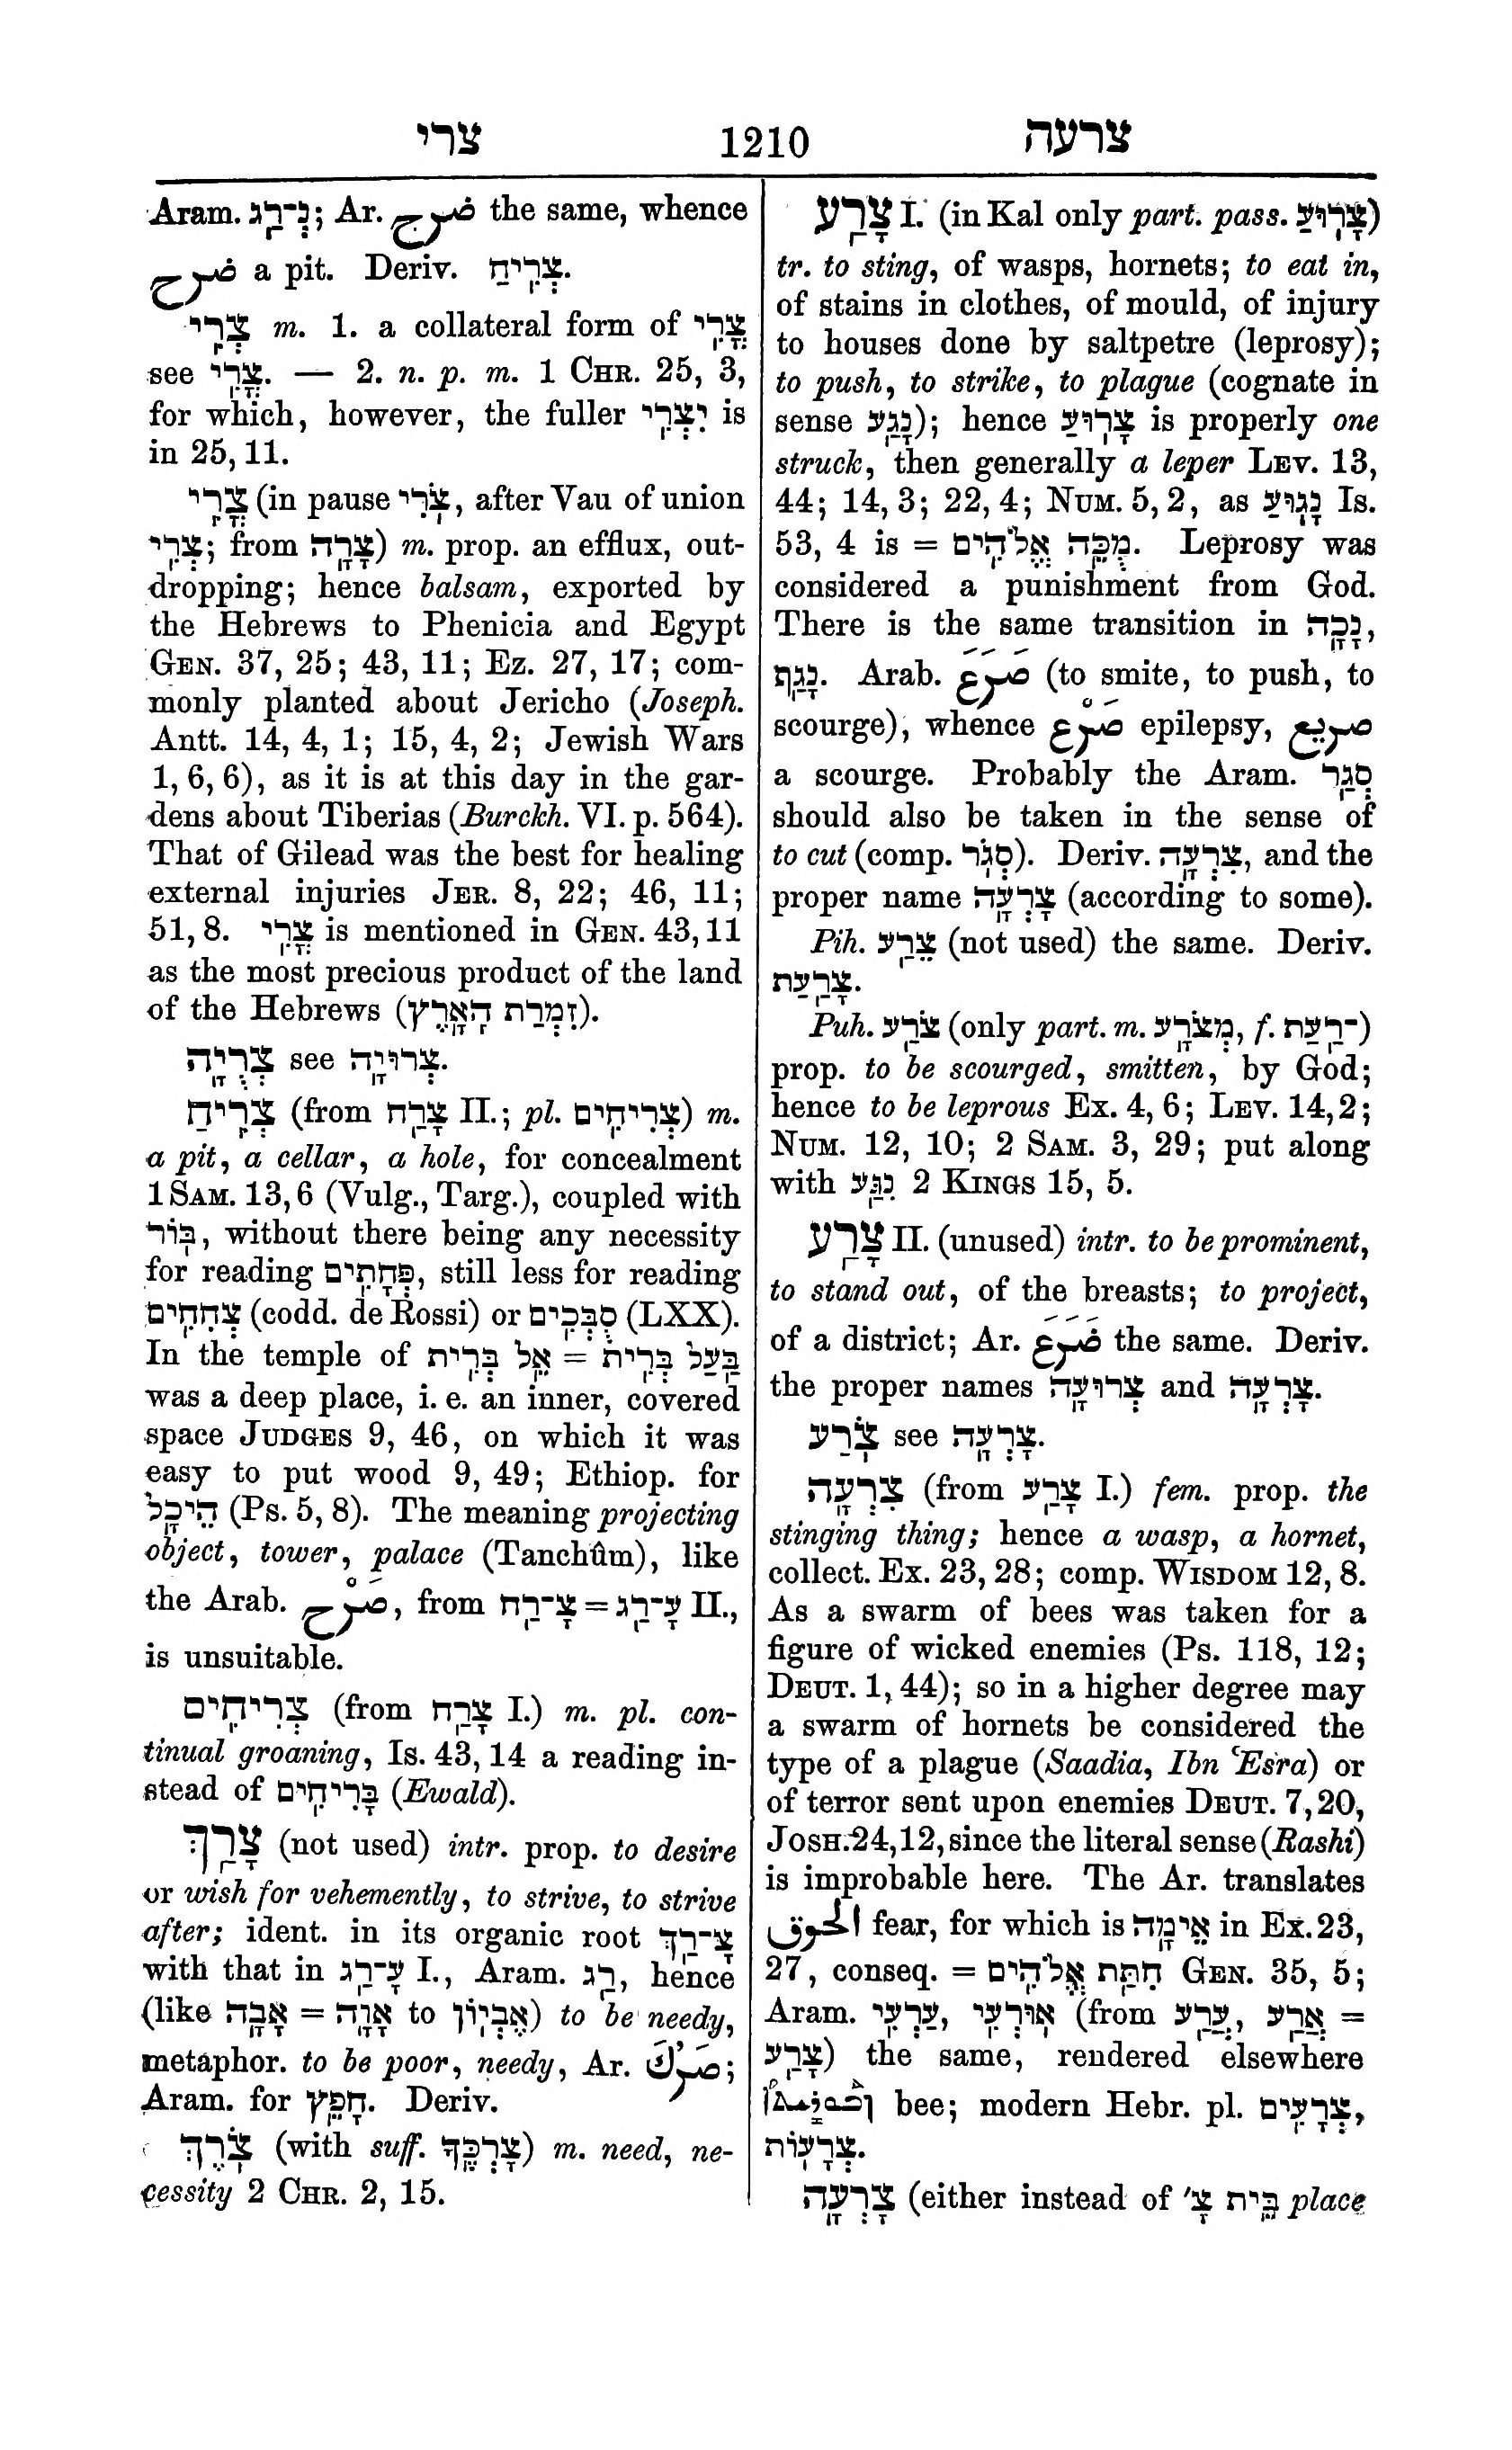 צרי 1210 צרעה
Aram. נְ־רַג; Ar. ضرج the same, whence
ضرح a pit. Deriv. צְרִיחַ.
צְרִי m. 1. a collateral form of צֳרִי
see צֳרִי. — 2. n. p. m. 1 CHR. 25, 3,
for which, however, the fuller יִצְרִי is
in 25, 11.
צֳרִי (in pause צֹרִי, after Vau of union
צְרִי; from צָרָה) m. prop. an efflux, out-
dropping; hence balsam, exported by
the Hebrews to Phenicia and Egypt
GEN. 37, 25; 43, 11; Ez. 27, 17; com-
monly planted about Jericho (Joseph.
Antt. 14, 4, 1; 15, 4, 2; Jewish Wars
1, 6, 6), as it is at this day in the gar-
dens about Tiberias (Burckh. VI. p. 564).
That of Gilead was the best for healing
external injuries JER. 8, 22; 46, 11;
51, 8. צֳרִי is mentioned in GEN. 43, 11
as the most precious product of the land
of the Hebrews (זִמְרַת הָאָרֶץ).
צְרֻיָה see צְרוּיָה.
צְרִיחַ (from צָרַח II.; pl. צְרִיחִים) m.
a pit, a cellar, a hole, for concealment
1 SAM. 13, 6 (Vulg., Targ.), coupled with
בּוֹר, without there being any necessity
for reading פְּחָתִים, still less for reading
צְחִחִים (codd. de Rossi) or סֻבְּכִים (LXX).
In the temple of בַּעַל בְּרִית = אֵל בְּרִית
was a deep place, i. e. an inner, covered
space JUDGES 9, 46, on which it was
easy to put wood 9, 49; Ethiop. for
הֵיכָל (Ps. 5, 8). The meaning projecting
object, tower, palace (Tanchûm), like
the Arab. صَرْح, from צָ־רַח = עָ־רַג II.,
is unsuitable.
צְרִיחִים (from צָרַח I.) m. pl. con-
tinual groaning, Is. 43, 14 a reading in-
stead of בָּרִיחִים (Ewald).
צָרַךְ (not used) intr. prop. to desire
or wish for vehemently, to strive, to strive
after; ident. in its organic root צָ־רַךְ
with that in עָ־רַג I., Aram. רַג, hence
(like אָבָה = אָוָה to אֶבְיוֹן) to be needy,
metaphor. to be poor, needy, Ar. ضَرُكَ;
Aram. for חָפֵץ. Deriv.
צֹרֶךְ (with suff. צָרְכֶּךָ) m. need, ne-
cessity 2 CHR. 2, 15.
צָרַע I. (in Kal only part. pass. צָרוּעַ)
tr. to sting, of wasps, hornets; to eat in,
of stains in clothes, of mould, of injury
to houses done by saltpetre (leprosy);
to push, to strike, to plague (cognate in
sense נָגַע); hence צָרוּעַ is properly one
struck, then generally a leper LEV. 13,
44; 14, 3; 22, 4; NUM. 5, 2, as נָגוּעַ Is.
53, 4 is = מֻכֵּה אֱלֹהִים. Leprosy was
considered a punishment from God.
There is the same transition in נָכָה,
נָגַף. Arab. صَرَعَ (to smite, to push, to
scourge), whence صَرْع epilepsy, صريع
a scourge. Probably the Aram. סְגַר
should also be taken in the sense of
to cut (comp. סְגֹר). Deriv. צִרְעָה, and the
proper name צָרְעָה (according to some).
Pih. צֵרַע (not used) the same. Deriv.
צָרַעַת.
Puh. צֹרַע (only part. m. מְצֹרָע, f. ־רַעַת)
prop. to be scourged, smitten, by God;
hence to be leprous Ex. 4, 6; LEV. 14, 2;
NUM. 12, 10; 2 SAM. 3, 29; put along
with נִגַּע 2 KINGS 15, 5.
צָרַע II. (unused) intr. to be prominent,
to stand out, of the breasts; to project,
of a district; Ar. ضَرَعَ the same. Deriv.
the proper names צְרוּעָה and צָרְעָה.
צֹרַע see צָרְעָה.
צִרְעָה (from צָרַע I.) fem. prop. the
stinging thing; hence a wasp, a hornet,
collect. Ex. 23, 28; comp. WISDOM 12, 8.
As a swarm of bees was taken for a
figure of wicked enemies (Ps. 118, 12;
DEUT. 1, 44); so in a higher degree may
a swarm of hornets be considered the
type of a plague (Saadia, Ibn ʿEsra) or
of terror sent upon enemies DEUT. 7, 20,
JOSH. 24, 12, since the literal sense (Rashi)
is improbable here. The Ar. translates
fear, for which is אֵימָה in Ex. 23,
27, conseq. = חִתַּת אֱלֹהִים GEN. 35, 5;
Aram. עַרְעִי, אוּרְעִי (from עֲרַע, אֲרַע =
צָרַע) the same, rendered elsewhere
bee; modern Hebr. pl. צְרָעִים,
צְרָעוֹת.
צָרְעָה (either instead of בֵּית צָ' place